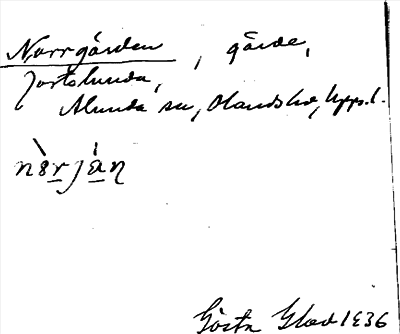 Norrgården, gårde,
Jortslunda,
Alunda sn, Olands hd, Upps. l.
nòrján
Gösta Glad 1936